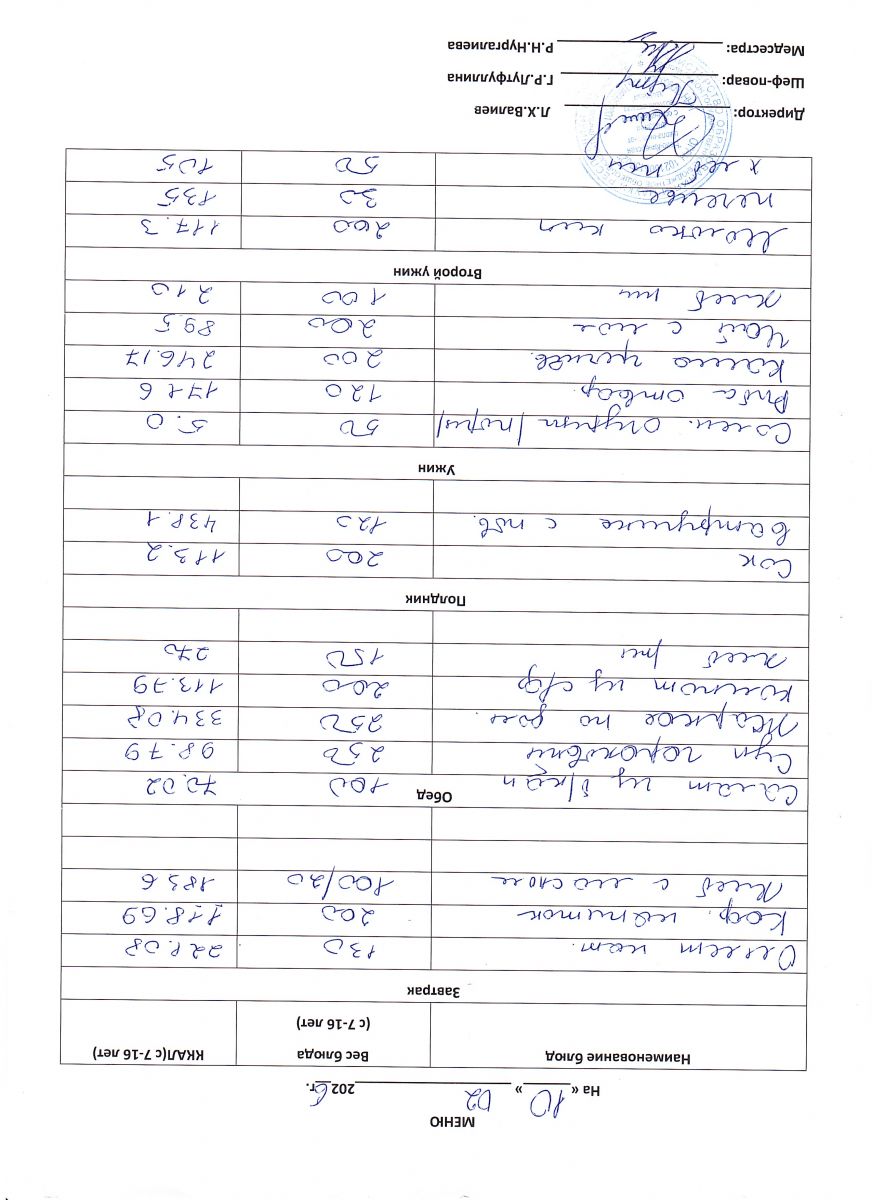 МЕНЮ
На « 10 » 02 2026г.
Наименование блюд Вес блюда (с 7-16 лет) ККАЛ(с 7-16 лет)
Завтрак
Омлет нат. 130 221.08
Коф. напиток 200 118.69
Хлеб с маслом 100/20 183 6
Обед
Салат из в/кап 100 70.02
Суп гороховый 250 98.79
Жаркое по дом. 250 334.08
Компот из с/фр 200 113.79
Хлеб рж 150 270
Полдник
Сок 200 113.2
Ватрушка с пов. 120 438.1
Ужин
Солен. огурцы /порц/ 50 5.0
Рыба отвар. 120 171 6
Каша гречнев. 200 246.17
Чай с мол 200 89.5
Хлеб пш 100 210
Второй ужин
Молоко кип 200 117.3
печенье 30 135
хлеб пш 50 105
Директор: Л.Х.Валиев
Шеф-повар: Г.Р.Лутфуллина
Медсестра: Р.Н.Нургалиева